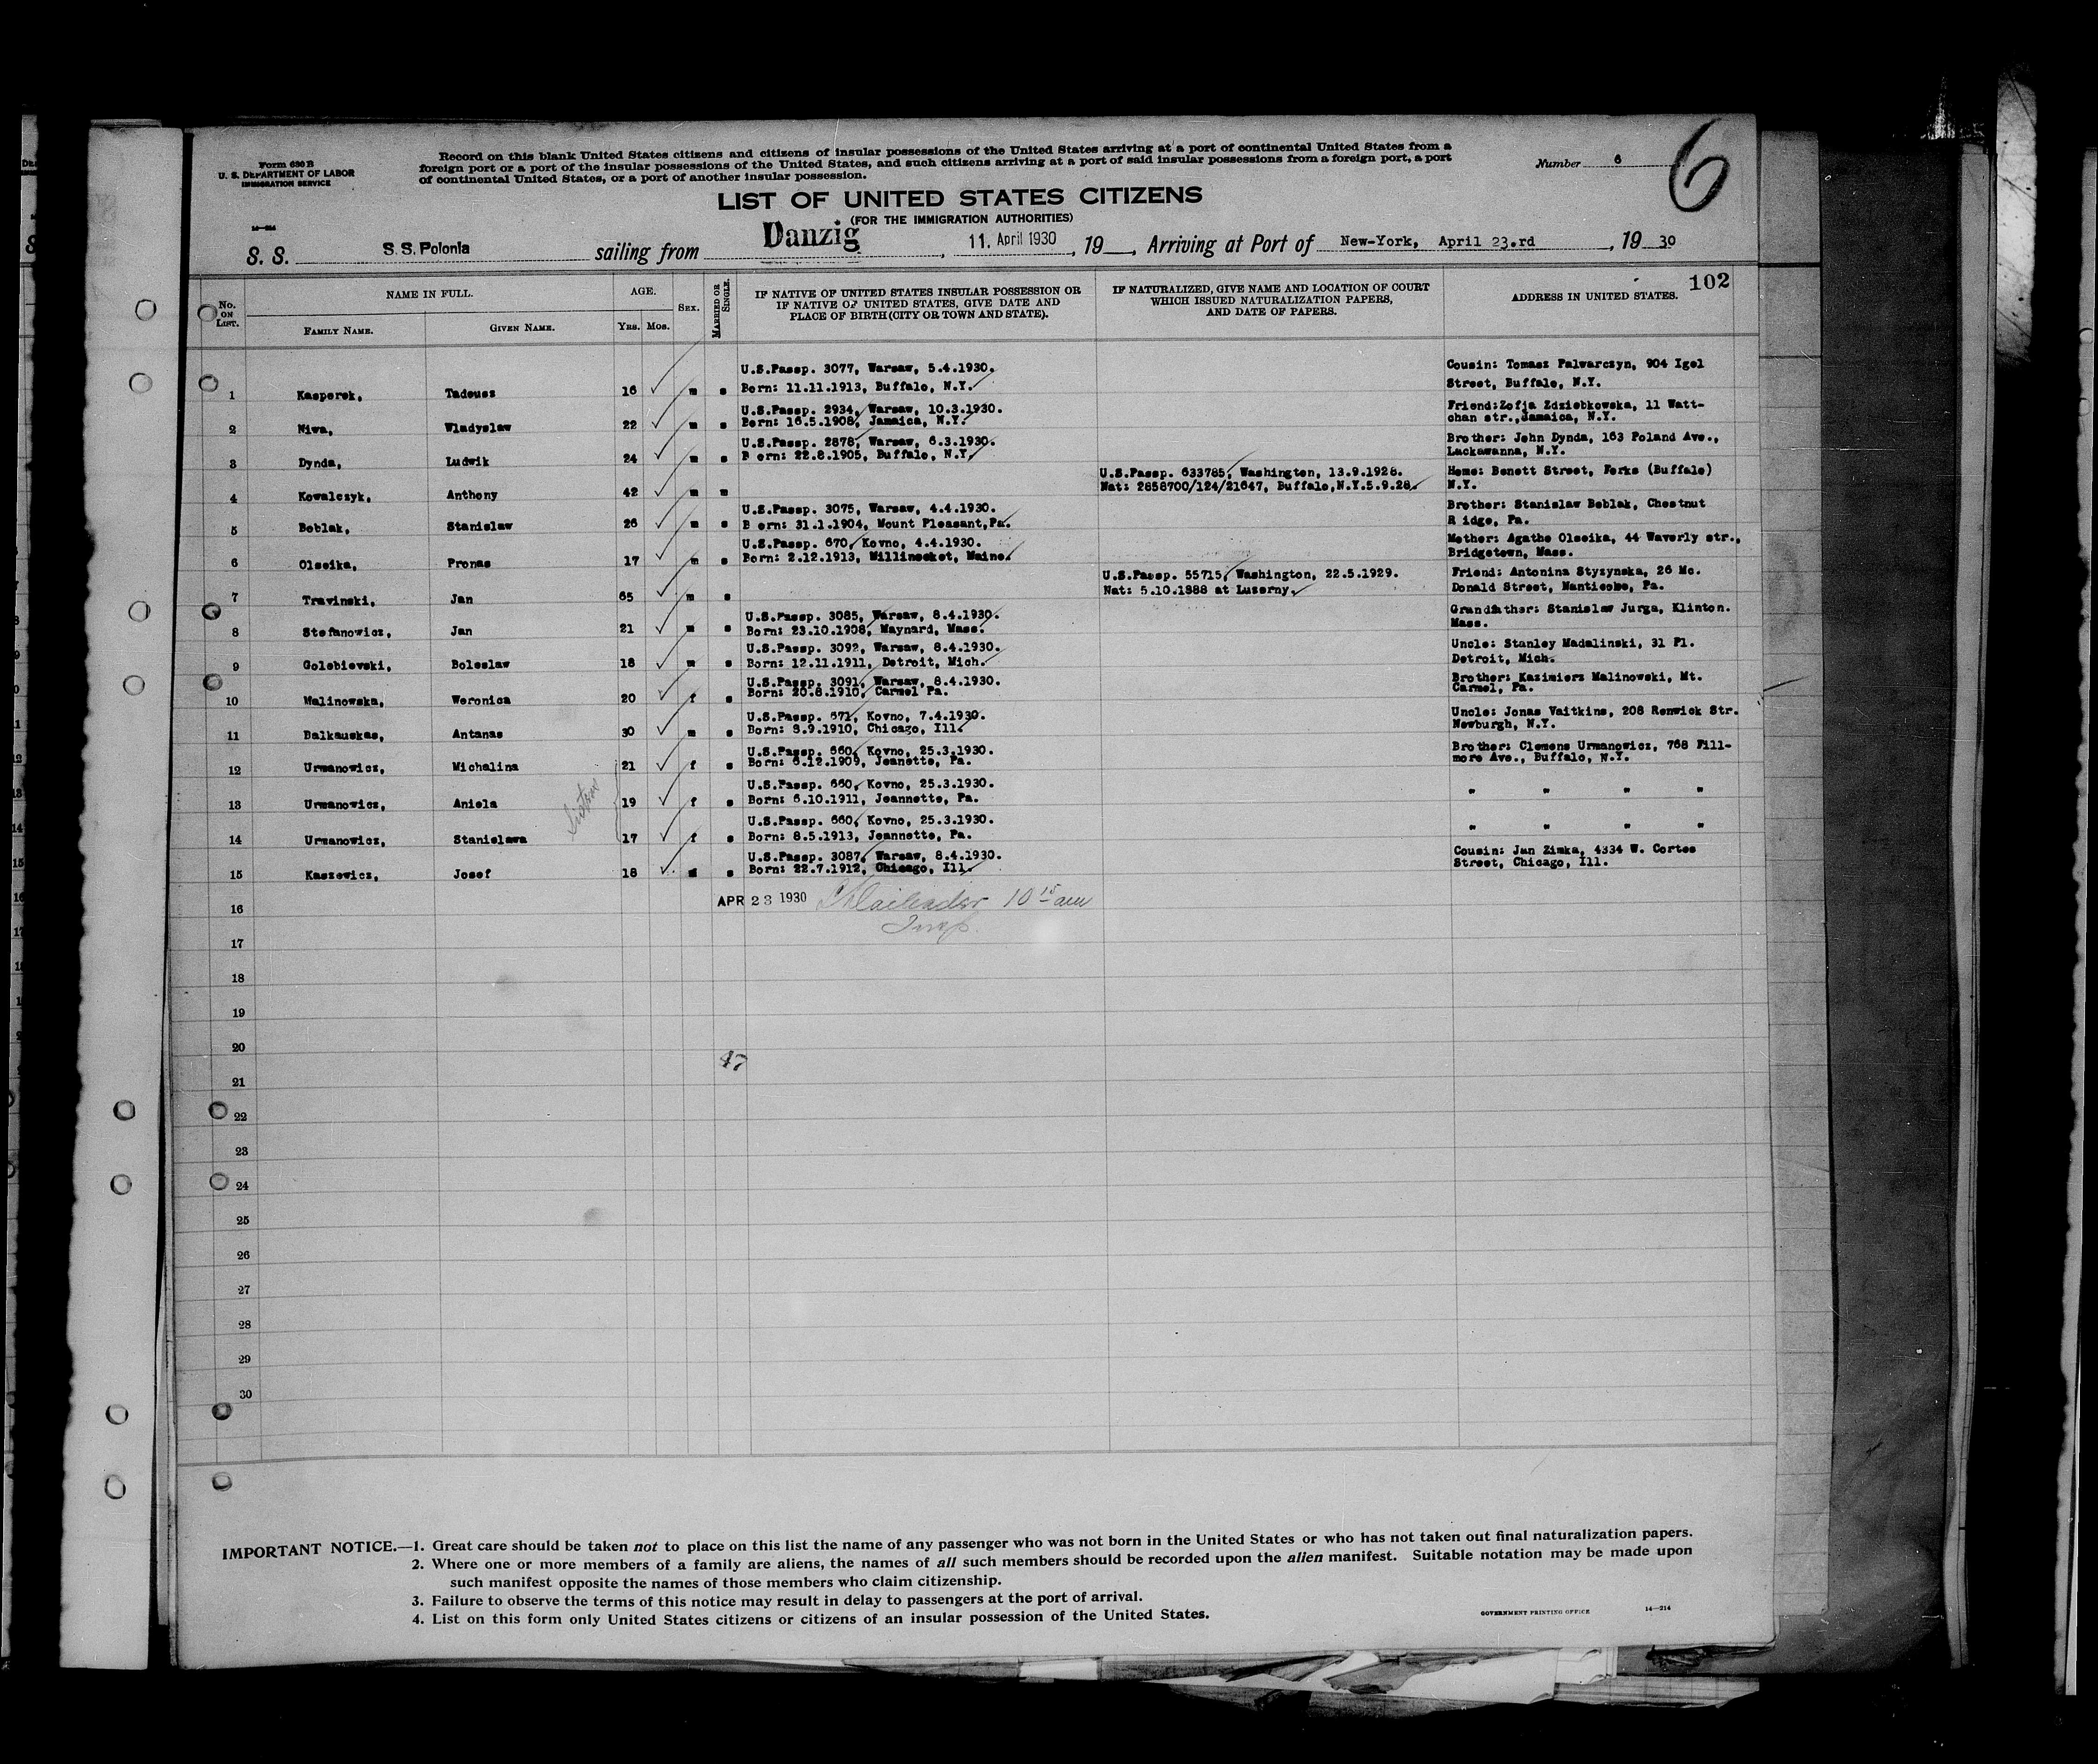 Form 630 B
U. S. DEPARTMENT OF LABOR
IMMIGRATION SERVICE
Record on this blank United States citizens and citizens of insular possessions of the United States arriving at a port of continental United States from a
foreign port or a port of the insular possessions of the United States, and such citizens arriving at a port of said insular possessions from a foreign port, a port
of continental United States, or a port of another insular possession.
Number 6
6
LIST OF UNITED STATES CITIZENS
(FOR THE IMMIGRATION AUTHORITIES)
14—214
S. S. S.S. Polonia sailing from Danzig, 11. April 1930, 19__, Arriving at Port of New-York, April 23.rd, 19 30
102
No. ON LIST. NAME IN FULL. AGE. SEX. MARRIED OR SINGLE. IF NATIVE OF UNITED STATES INSULAR POSSESSION OR IF NATIVE OF UNITED STATES, GIVE DATE AND PLACE OF BIRTH (CITY OR TOWN AND STATE). IF NATURALIZED, GIVE NAME AND LOCATION OF COURT WHICH ISSUED NATURALIZATION PAPERS, AND DATE OF PAPERS. ADDRESS IN UNITED STATES.
FAMILY NAME. GIVEN NAME. YRS. MOS.
U.S.Passp. 3077, Warsaw, 5.4.1930. Cousin: Tomasz Palwarczyn, 904 Igel
1 Kasperek, Tadeusz 16 m s Born: 11.11.1913, Buffalo, N.Y. Street, Buffalo, N.Y.
U.S.Passp. 2934, Warsaw, 10.3.1930. Friend:Zofja Zdziebkowska, 11 Watt-
2 Niwa, Wladyslaw 22 m s Born: 16.5.1908, Jamaica, N.Y. chan str.,Jamaica, N.Y.
U.S.Passp. 2878, Warsaw, 6.3.1930. Brother: John Dynda, 163 Poland Ave.,
3 Dynda, Ludwik 24 m s B orn: 22.8.1905, Buffalo, N.Y. Lackawanna, N.Y.
U.S.Passp. 633785, Washington, 13.9.1928. Home: Benett Street, Forks (Buffalo)
4 Kowalczyk, Anthony 42 m m Nat: 2658700/124/21647, Buffalo,N.Y.5.9.28. N.Y.
U.S.Passp. 3075, Warsaw, 4.4.1930. Brother: Stanislaw Boblak, Chestnut
5 Boblak, Stanislaw 26 m s B orn: 31.1.1904, Mount Pleasant,Pa. R idge, Pa.
U.S.Passp. 670, Kovno, 4.4.1930. Mother: Agathe Olseika, 44 Waverly str.,
6 Olseika, Pronas 17 m s Born: 2.12.1913, Millinocket, Maine. Bridgetown, Mass.
U.S.Passp. 55715, Washington, 22.5.1929. Friend: Antonina Styzynska, 26 Mc.
7 Travinski, Jan 65 m s Nat: 5.10.1888 at Luzerny. Donald Street, Nanticoke, Pa.
U.S.Passp. 3085, Warsaw, 8.4.1930. Grandfather: Stanislaw Jurga, Klinton.
8 Stefanowicz, Jan 21 m s Born: 23.10.1908, Maynard, Mass. Mass.
U.S.Passp. 3092, Warsaw, 8.4.1930. Uncle: Stanley Madalinski, 31 Pl.
9 Golebievski, Boleslaw 18 m s Born: 12.11.1911, Detroit, Mich. Detroit, Mich.
U.S.Passp. 3091, Warsaw, 8.4.1930. Brother: Kazimierz Malinowski, Mt.
10 Malinowska, Weronica 20 f s Born: 20.8.1910, Carmel Pa. Carmel, Pa.
U.S.Passp. 671, Kovno, 7.4.1930. Uncle: Jonas Vaitkins, 208 Renwick Str.
11 Balkauskas, Antanas 30 m s Born: 8.9.1910, Chicago, Ill. Newburgh, N.Y.
U.S.Passp. 660, Kovno, 25.3.1930. Brother: Clemens Urmanowicz, 768 Fill-
12 Urmanowicz, Michalina 21 f s Born: 6.12.1909, Jeanette, Pa. more Ave., Buffalo, N.Y.
U.S.Passp. 660, Kovno, 25.3.1930.
13 Urmanowicz, Aniela 19 f s Born: 6.10.1911, Jeannette, Pa. " " " "
Sisters
U.S.Passp. 660, Kovno, 25.3.1930.
14 Urmanowicz, Stanislawa 17 f s Born: 8.5.1913, Jeannette, Pa. " " " "
U.S.Passp. 3087, Warsaw, 8.4.1930. Cousin: Jan Zimka, 4334 W. Cortes
15 Kaszewicz, Josef 18 m s Born: 22.7.1912, Chicago, Ill. Street, Chicago, Ill.
16 APR 23 1930 10 15 am
Insp.
17
18
19
20
47
21
22
23
24
25
26
27
28
29
30
IMPORTANT NOTICE.—1. Great care should be taken not to place on this list the name of any passenger who was not born in the United States or who has not taken out final naturalization papers.
2. Where one or more members of a family are aliens, the names of all such members should be recorded upon the alien manifest. Suitable notation may be made upon
such manifest opposite the names of those members who claim citizenship.
3. Failure to observe the terms of this notice may result in delay to passengers at the port of arrival.
4. List on this form only United States citizens or citizens of an insular possession of the United States.
GOVERNMENT PRINTING OFFICE 14—214